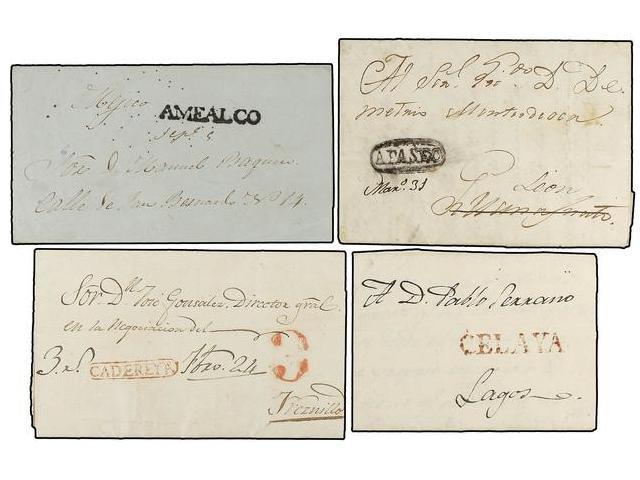 Mejico
AMEALCO
Sepe 5
Sor. D. Manuel Baquero
Calle de San Bernardo No. 14.
Al Sor. D. De
metrio Montesdeoca
APASEO
Marzo. 31
Leon
Guanajuato.
Sor. Dn. José Gonzalez, Director gral.
en la Negociacion del
3 rs.
CADEREYTA
Fbro. 24
3
Fresnillo
A D. Pablo Serrano
CELAYA
Lagos